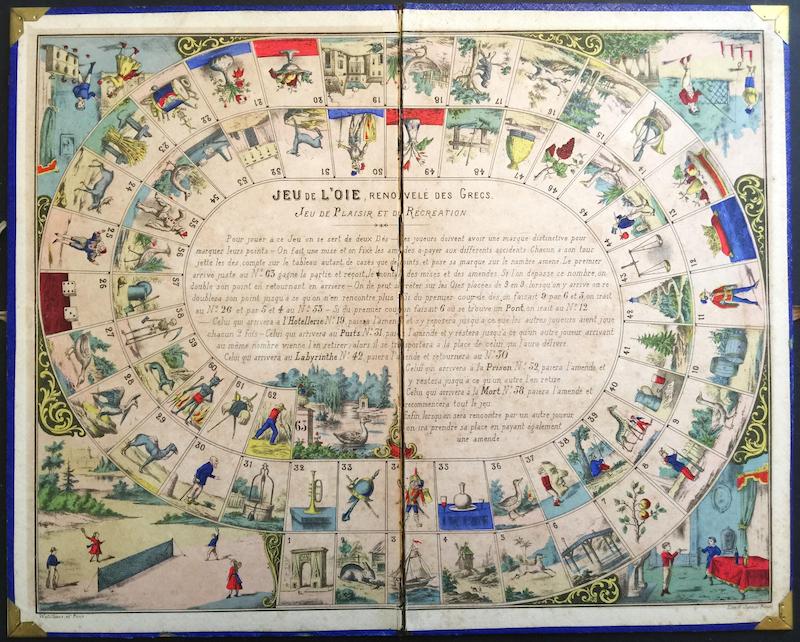 JEU DE L'OIE, RENOUVELÉ DES GRECS.
JEU DE PLAISIR ET DE RÉCRÉATION
Pour jouer à ce Jeu on se sert de deux Dés les joueurs doivent avoir une marque distinctive pour
marquer leurs points On fait une mise et on fixe les amendes a payer aux differents accidents Chacun a son tour
jette les des, compte sur le tableau autant de cazes que de points, et pose sa marque sur le nombre amené Le premier
arrivé juste au N° 63 gagne la partie et reçoit le montant des mises et des amendes. Si l'on dépasse ce nombre, on
double son point en retournant en arrière On ne peut s'arrêter sur les Oies placées de 9 en 9 lorsqu'on y arrive on re-
doublera son point jusqu'à ce qu'on n'en rencontre plus Si du premier coup de dés on faisait 9 par 6 et 3, on irait
au N° 26 et par 5 et 4 au N° 53 Si du premier coup on faisait 6 où se trouve un Pont, on irait au N° 12
Celui qui arrivera à l'Hotellerie N° 19, paiera l'amende et s'y reposera jusqu'à ce que les autres joueurs aient joué
chacun 2 fois Celui qui arrivera au Puits N° 31, paiera l'amende et y restera jusqu'à ce qu'un autre joueur arrivant
au même nombre vienne l'en retirer; alors il se transportera à la place de celui qui l'aura délivré.
Celui qui arrivera au Labyrinthe N° 42, paiera l'amende et retournera au N° 30
Celui qui arrivera à la Prison N° 52, paiera l'amende et
y restera jusqu'à ce qu'un autre l'en retire
Celui qui arrivera à la Mort N° 58 paiera l'amende et
recommencera tout le jeu.
Enfin lorsqu'on sera rencontré par un autre joueur
on ira prendre sa place en payant également
une amende
1
2
3
4
5
6
7
8
9
10
11
12
13
14
15
16
17
18
19
20
21
22
23
24
25
26
27
28
29
30
31
32
33
35
36
37
38
39
40
41
42
43
44
45
46
47
48
49
50
51
52
53
54
55
56
57
58
59
60
61
62
63